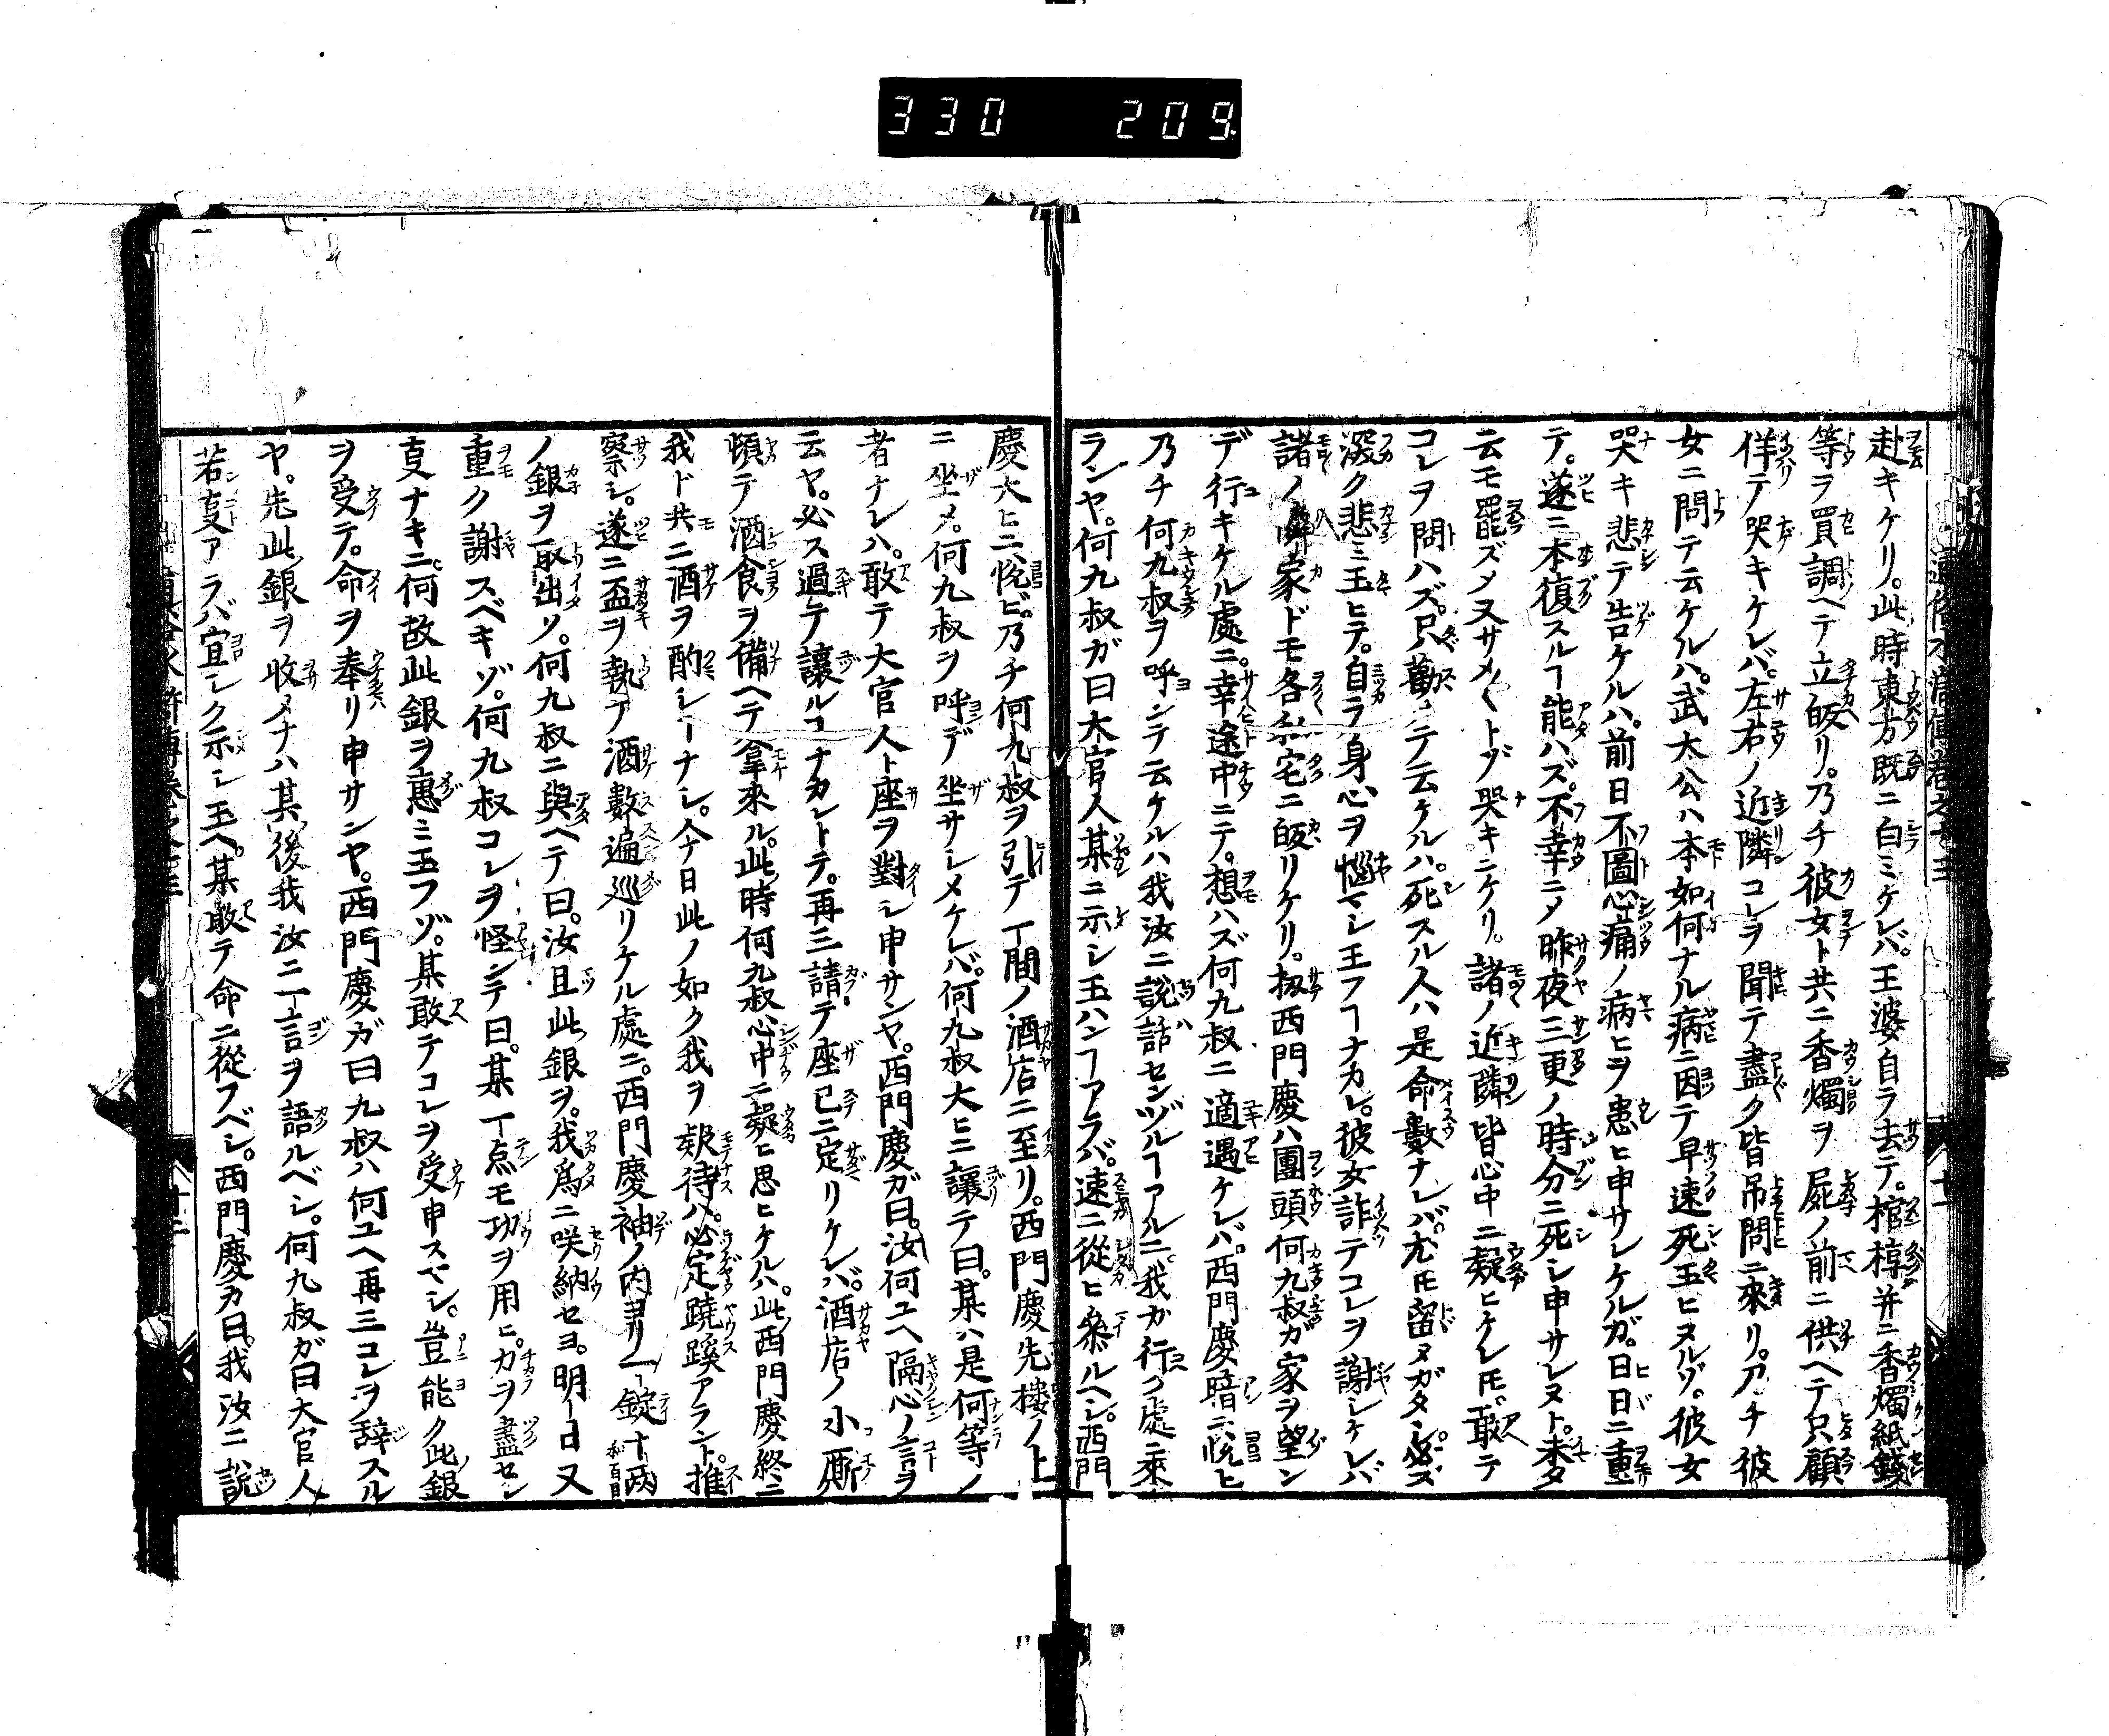 330 209
赴キケリ。此時東方既ニ白ミケレバ。王婆自ラ去テ。棺椁并ニ香燭紙錢
等ヲ買調ヘテ立皈リ。乃チ彼女ト共ニ香燭ヲ屍ノ前ニ供ヘテ只顧
佯テ哭キケレバ。左右ノ近隣コレヲ聞テ盡ク皆吊問ニ來リ。乃チ彼
女ニ問テ云ケルハ。武大公ハ本如何ナル病ニ因テ早速死玉ヒヌルゾ。彼女
哭キ悲テ告ケルハ。前日不圖心痛ノ病ヒヲ患ヒ申サレケルガ。日日ニ重
テ。遂ニ本復スルヿ能ハズ。不幸ニメ昨夜三更ノ時分ニ死シ申サレヌト。未タ
云モ罷ズメ又サメ〱トゾ哭キニケリ。諸ノ近隣皆心中ニ疑ヒケレ𪜈。敢テ
コレヲ問ハズ。只勸メテ云ケルハ。死スル人ハ是命數ナレバ。尤𪜈留メガタシ。必ズ
深ク悲ミ玉ヒテ。自ラ身心ヲ惱マシ玉フヿナカレ。彼女詐テコレヲ謝シケレバ
諸ノ隣家ドモ各私宅ニ皈リケリ。扨西門慶ハ團頭何九叔ガ家ヲ望ン
デ行キケル處ニ。幸途中ニテ。想ハズ何九叔ニ適遇ケレバ。西門慶暗ニ悦ヒ
乃チ何九叔ヲ呼ンテ云ケルハ我汝ニ説話センヅルヿアルニ。我カ行ク處ニ來
ランヤ。何九叔ガ曰大官人某ニ示シ玉ハンヿアラバ。速ニ從ヒ參ルヘシ。西門
慶大ヒニ悦ビ。乃チ何九叔ヲ引テ一間ノ酒店ニ至リ。西門慶先樓ノ上
ニ坐メ。何九叔ヲ呼デ坐サシメケレバ。何九叔大ヒニ讓テ曰。某ハ是何等ノ
者ナレハ。敢テ大官人ト座ヲ對シ申サンヤ。西門慶ガ曰。汝何ユヘ隔心ノ言ヲ
云ヤ。必ス過テ讓ルコナカレトテ。再三請テ座已ニ定リケレバ。酒店ノ小厮
頓テ酒食ヲ備ヘテ拿來ル。此時何九叔心中ニ疑ヒ思ヒケルハ。此西門慶終ニ
我ド共ニ酒ヲ酌シヿナシ。今日此ノ如ク我ヲ欵待ハ。必定蹺蹊アラント。推
察シ。遂ニ盃ヲ執テ酒數遍巡リケル處ニ。西門慶袖ノ内ヨリ一錠十两
ノ銀ヲ取出ソ。何九叔ニ與ヘテ曰。汝且此銀ヲ。我爲ニ咲納セヨ。明日又
重ク謝スベキゾ。何九叔コレヲ怪ンテ曰。某一点モ功ヲ用ヒ。力ヲ盡セシ
叓ナキニ。何故此銀ヲ惠ミ玉フゾ。某敢テコレヲ受申スマシ。豈能ク此銀
ヲ受テ。命ヲ奉リ申サンヤ。西門慶ガ曰九叔ハ何ユヘ再三コレヲ辞スル
ヤ。先此銀ヲ收メナハ其後我汝ニ一言ヲ語ルベシ。何九叔ガ曰大官人
若叓アラバ宜シク示シ玉ヘ。某敢テ命ニ從フベシ。西門慶カ曰。我汝ニ説